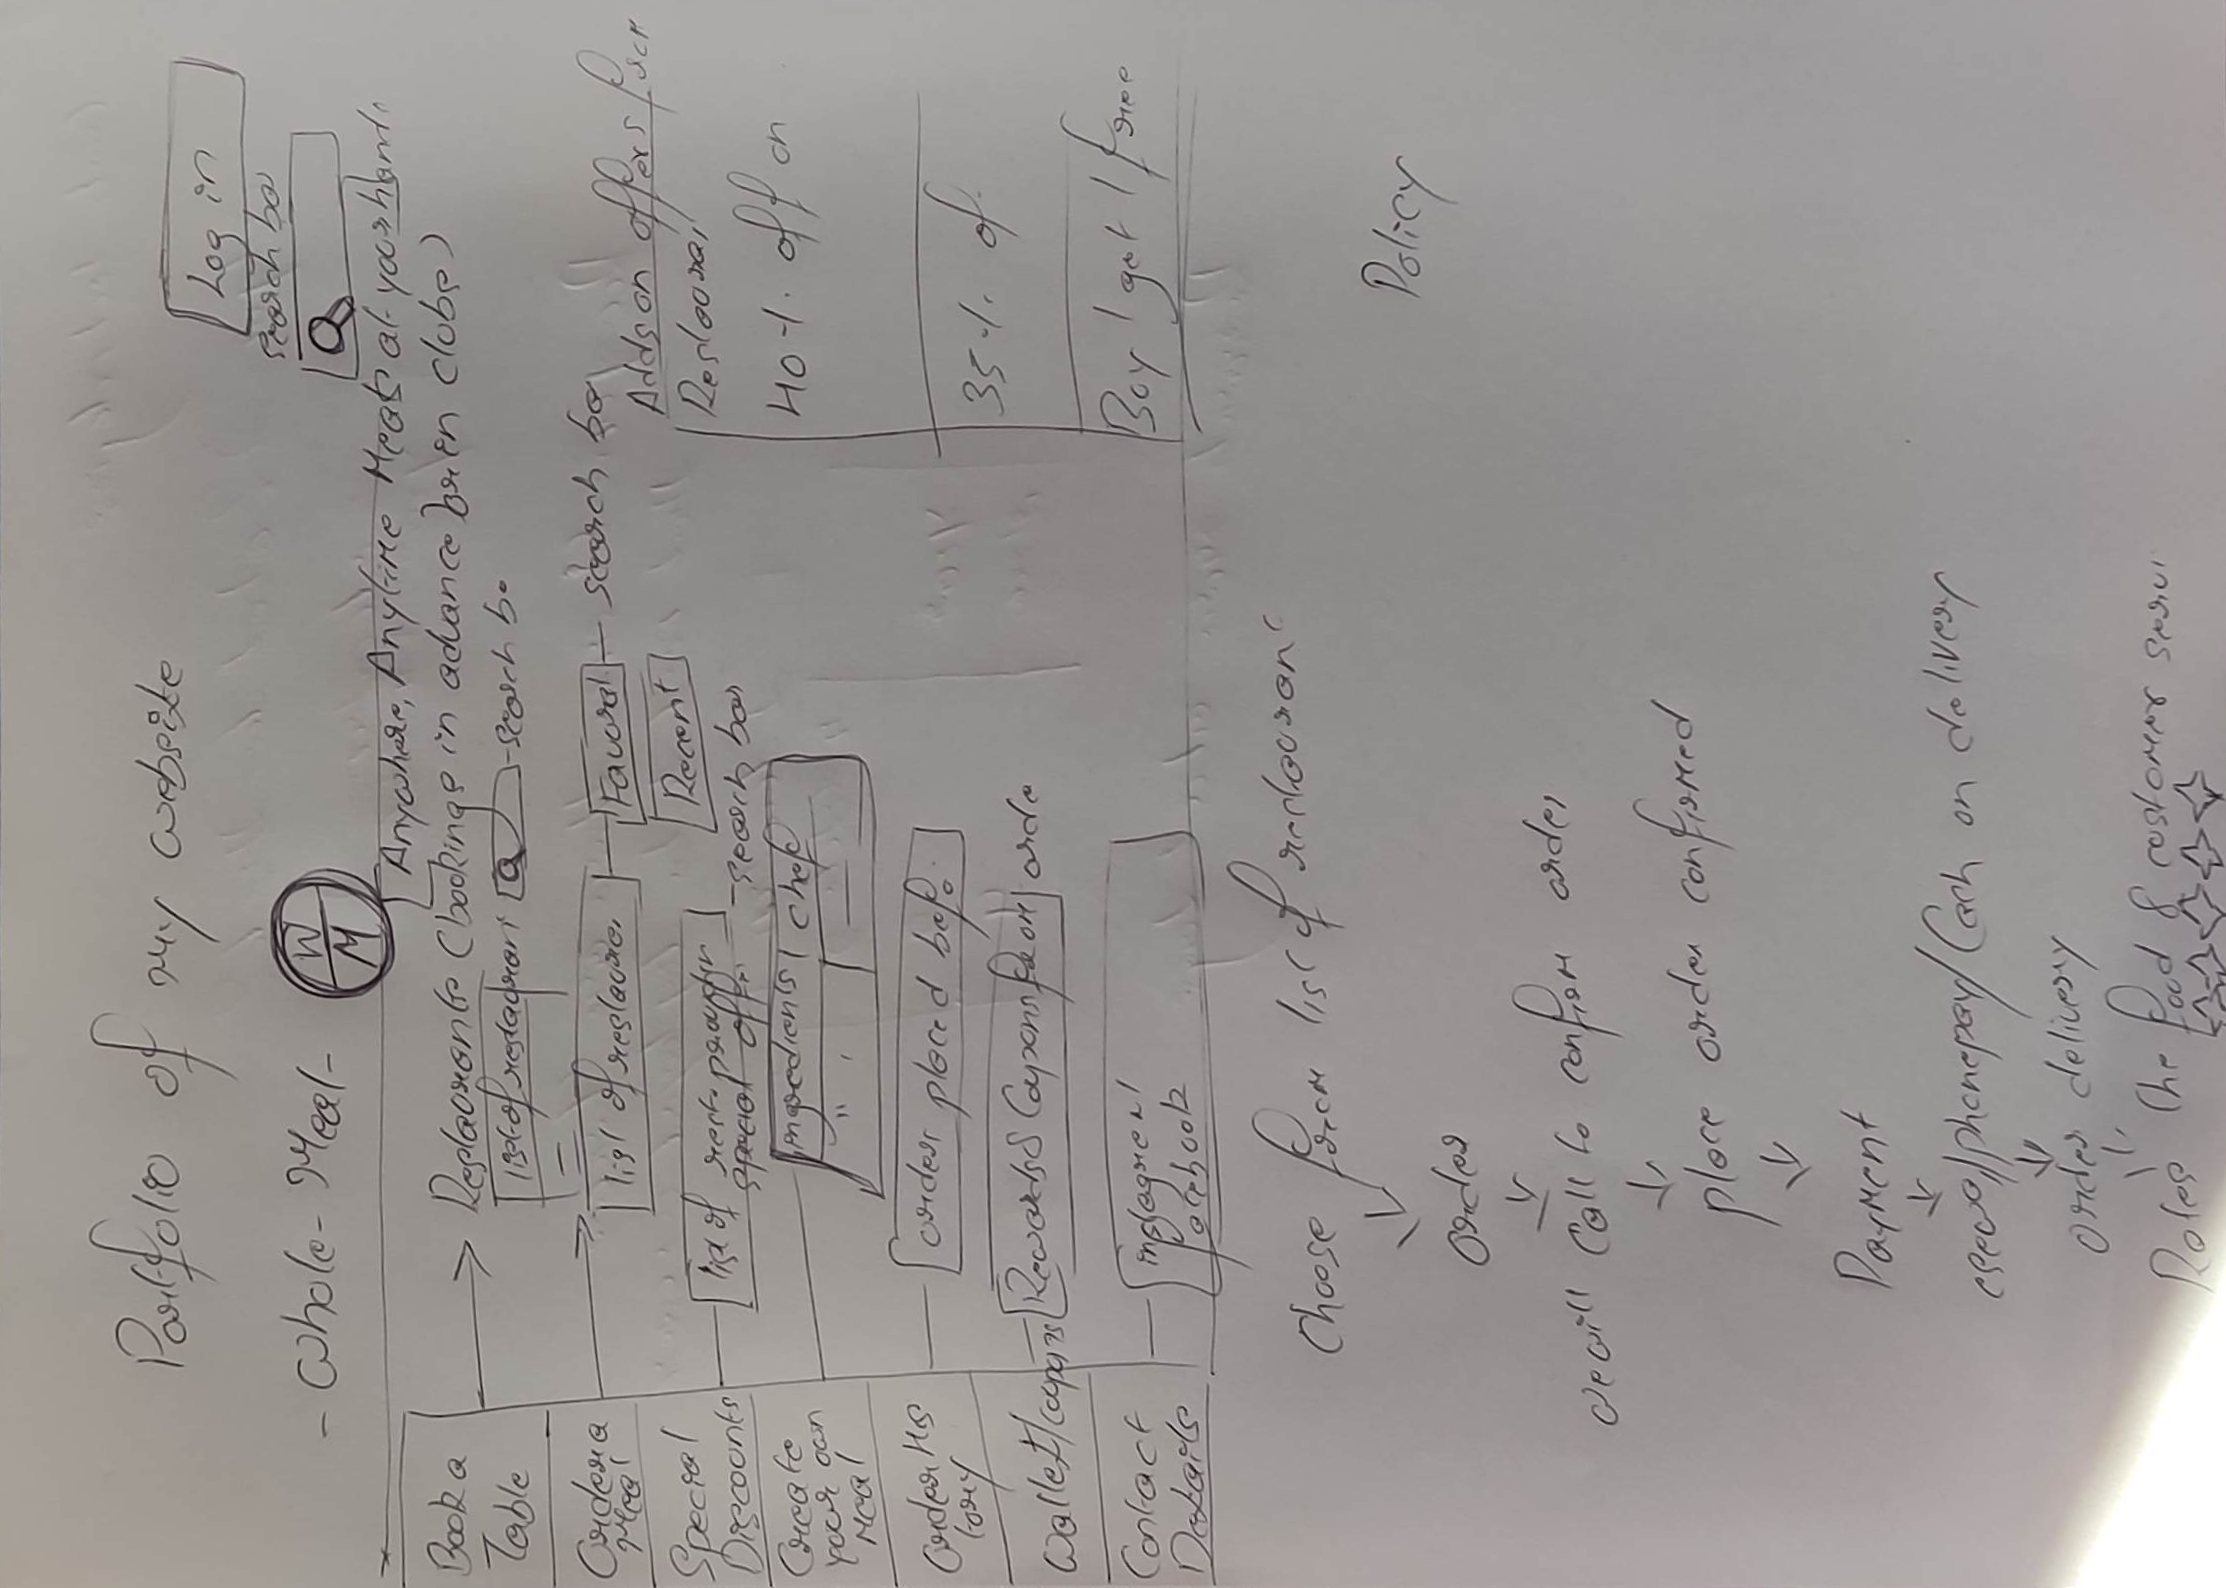 Portfolio of my website
Log in
search ba
- Whole - Meal -
W
M
Anywhere, Anytime Meals at your hand
Book a
Table
Restaurants (bookings in advance in clubs)
list of restauran
search b
Order a
Meal
list of restaura
Favorat
search ba
Recent
Adds on offers from
Restaura
Special
Discounts
list of rest.
special off
search bar
40 %. off on
Create
your own
Meal
ingredients
chef
Order His
tory
orders placed bef.
35 %. of
Wallet/coupons
Rewards & Coupons from orde
Contact
Details
instagram
facebook
Buy 1 get 1 free
Choose from list of restauran
Policy
order
we will call to confirm order
place order confirmed
Payment
esewa/phonepay/Cash on delivery
order delivery
Rates the food & customer servi